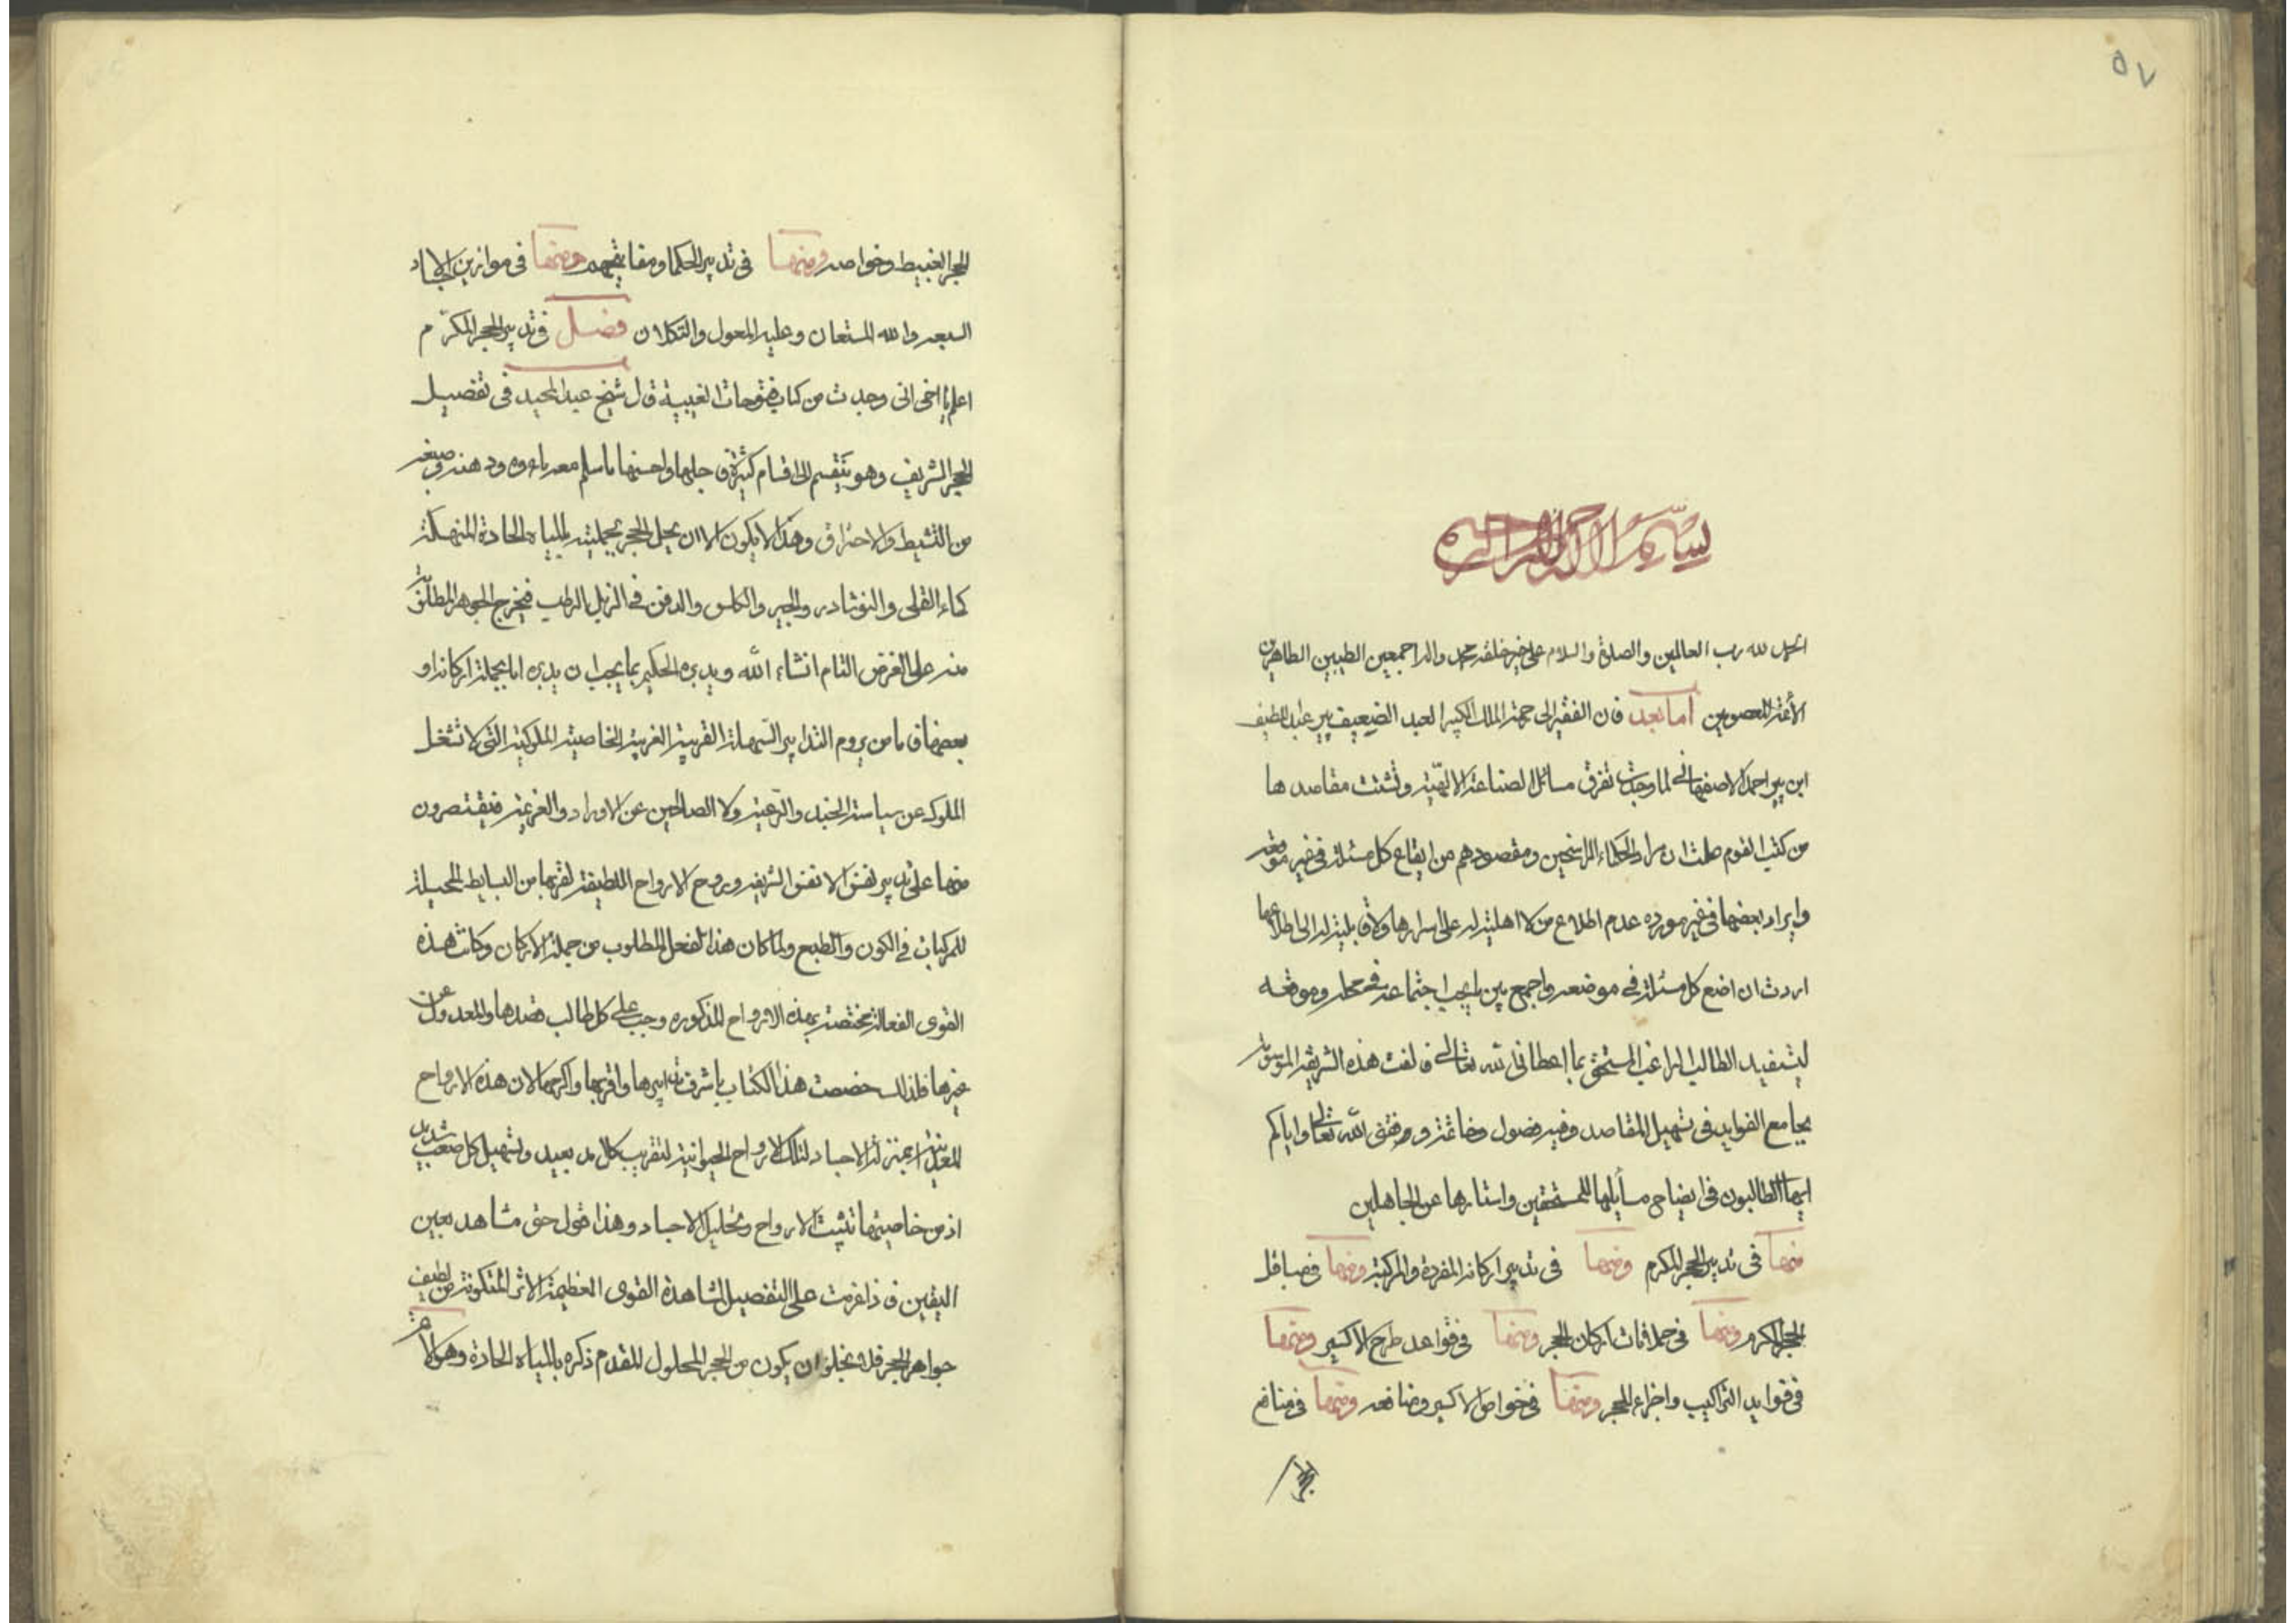 ٥٧
بسم الله الرحمن الرحيم
الحمد لله رب العالمين والصلوة والسلام على خير خلقه محمد واله اجمعين الطيبين الطاهرين
الأئمة المعصومين اما بعد فان الفقير الى رحمة الملك الكبير العبد الضعيف پير عبد اللطيف
ابن پير احمد الاصفهانى لما وجدت تفرق مسائل الصناعة الالهيّة وتشتت مقاصدها
من كتب القوم علمت ان مراد الحكماء الراسخين ومقصودهم من ايقاع كل مسئلة فى غير موقعه
وايراد بعضها فى غير مورده عدم اطلاع من لا اهلية له على اسرارها ولا قابلية له الى اطلاعها
اردت ان اضع كل مسئلة فى موضعه واجمع بين ما يجب اجتماعه فى محله وموقعه
ليستفيد الطالب الراغب المستحق بما اعطانى الله تعالى فالفت هذه الشريفة الموسومة
بجامع الفوايد فى تسهيل المقاصد وفيه فصول وخاتمة ووفقنى الله تعالى واياكم
ايها الطالبون فى ايضاح مسايلها للمستحقين واستارها عن الجاهلين
منها فى تدبير الحجر المكرم ومنها فى تدبير اركانه المفردة والمركبة ومنها
الحجر المكرم ومنها فى ملاقات اركان الحجر ومنها فى قواعد طرح الاكسير ومنها
فى فوايد التراكيب واجزاء الحجر ومنها فى خواص الاكسير ومنافعه ومنها فى منافع
الحجر
الحجر الغبيط وخواصه ومنها فى تدبير الحكما ومنها فى موازين الاجساد
السبعه والله المستعان وعليه المعول والتكلان فصل فى تدبير الحجر المكرّم
اعلم يا اخى انى وجدت من كتاب فتوحات الغيبية قال شيخ عبد المجيد فى تفصيل
الحجر الشريف وهو ينقسم الى اقسام كثيرة فاجلها واحسنها ما سلم معه ماءه ودهنه وصبغه
من التشيط والاحتراق وهذا لا يكون الا ان يحل الحجر بجملته بالمياه الحادة المنهكة
كماء القلى والنوشادر والجير والكلس والدفن فى الزبل الرطب فيخرج الجوهر المطلوب
منه على الغرض التام انشاء الله ويدبره الحكيم بما يجب ان يدبره اما بجملة اركانه او
بعضها فاما من يروم التدابير السّهلة القريبة الغريبة الخاصية الملوكية التى لا تشغل
الملوك عن سياسة الجند والرّعية ولا الصالحين عن الاوراد والعزيمة فيقتصرون
منها على تدبير نفس الانفس الشريفة وروح الارواح اللطيفة لقربها من البسايط المحيلة
للمركبات فى الكون والطبع ولما كان هذا الفعل المطلوب من جملة الاركان وكانت هذه
القوى الفعالة مختصة بهذه الارواح المذكوره وجب على كل طالب قصدها والعدول عن
غيرها فلذلك خصصت هذا الكتاب باشرف تدابيرها واقربها واكرمها لان هذه الارواح
المعدنية بمنزلة الاجساد لتلك الارواح الحيوانية لتقريب كل بعيد وتسهيل كل صعب شديد
اذ من خاصيتها تثبيت الارواح وتحليل الاجساد وهذا قول حق مشاهد بعين
اليقين فاذا عزمت على التفصيل لمشاهدة القوى العظيمة الاثر المتكونة من لطيف
جواهر الحجر فلا يخلو ان يكون من الحجر المحلول المقدم ذكره بالمياه الحادة وهو